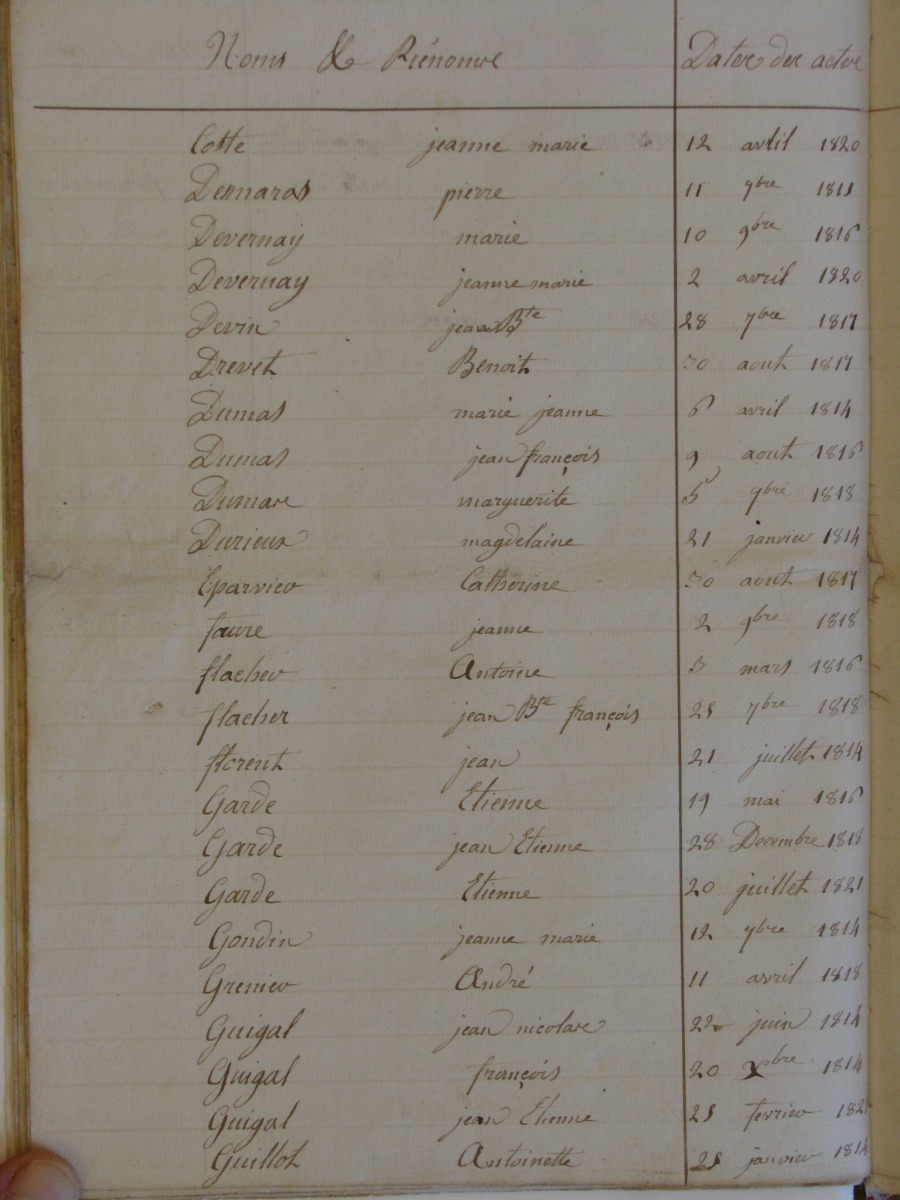 Noms & Prénoms Dates des actes
Cotte jeanne marie 12 avril 1820
Demaras pierre 11 7bre 1815
Devernay marie 10 9bre 1816
Devernay jeanne marie 2 avril 1820
Devin jean Bte 28 7bre 1817
Drevet Benoit 30 aout 1817
Dumas marie jeanne 6 avril 1814
Dumas jean françois 9 aout 1816
Dumas marguerite 5 7bre 1818
Durieux magdelaine 21 janvier 1814
Eparvier Catherine 30 aout 1817
faure jeanne 2 9bre 1818
flacher Antoine 3 mars 1816
flacher jean Bte françois 25 7bre 1818
florent jean 21 juillet 1814
Garde Etienne 19 mai 1816
Garde jean Etienne 28 Decembre 1818
Garde Etienne 20 juillet 1821
Gondin jeanne marie 12 7bre 1814
Grenier André 11 avril 1818
Guigal jean nicolas 22 juin 1814
Guigal françois 20 Xbre 1814
Guigal jean Etienne 25 fevrier
Guillot Antoinette 25 janvier 1814